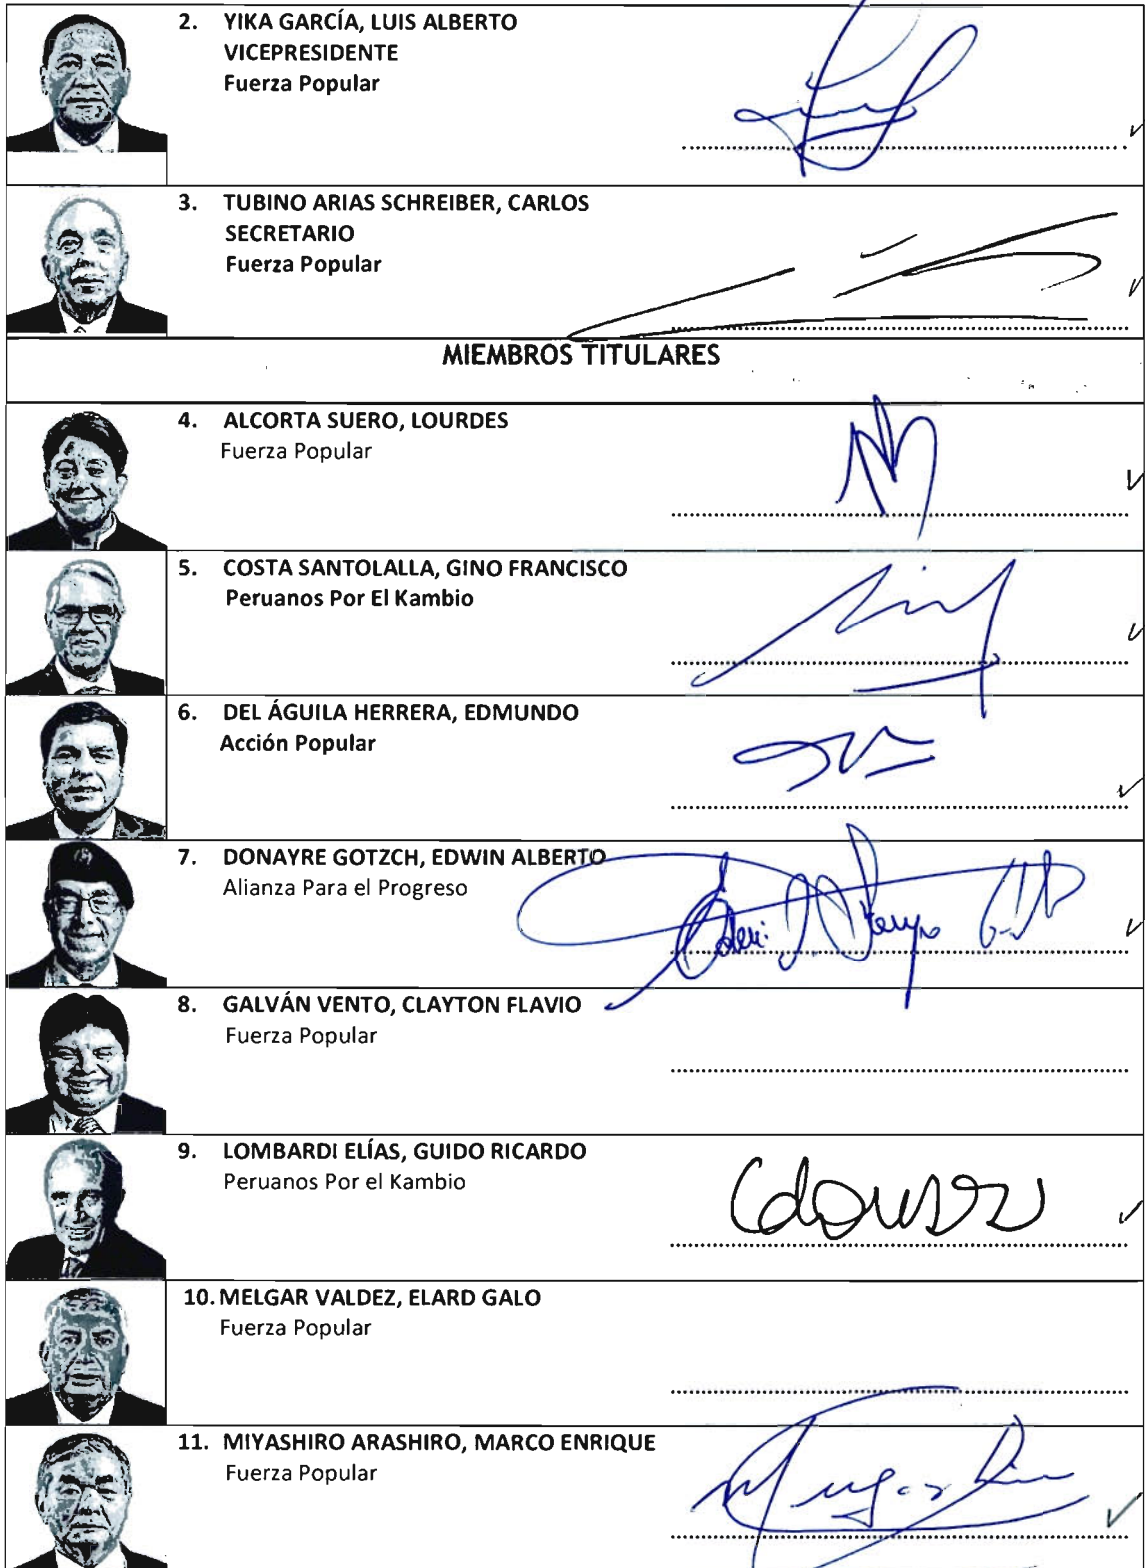 2. YIKA GARCÍA, LUIS ALBERTO
VICEPRESIDENTE
Fuerza Popular
3. TUBINO ARIAS SCHREIBER, CARLOS
SECRETARIO
Fuerza Popular
MIEMBROS TITULARES
4. ALCORTA SUERO, LOURDES
Fuerza Popular
5. COSTA SANTOLALLA, GINO FRANCISCO
Peruanos Por El Kambio
6. DEL ÁGUILA HERRERA, EDMUNDO
Acción Popular
7. DONAYRE GOTZCH, EDWIN ALBERTO
Alianza Para el Progreso
8. GALVÁN VENTO, CLAYTON FLAVIO
Fuerza Popular
9. LOMBARDI ELÍAS, GUIDO RICARDO
Peruanos Por el Kambio
10. MELGAR VALDEZ, ELARD GALO
Fuerza Popular
11. MIYASHIRO ARASHIRO, MARCO ENRIQUE
Fuerza Popular